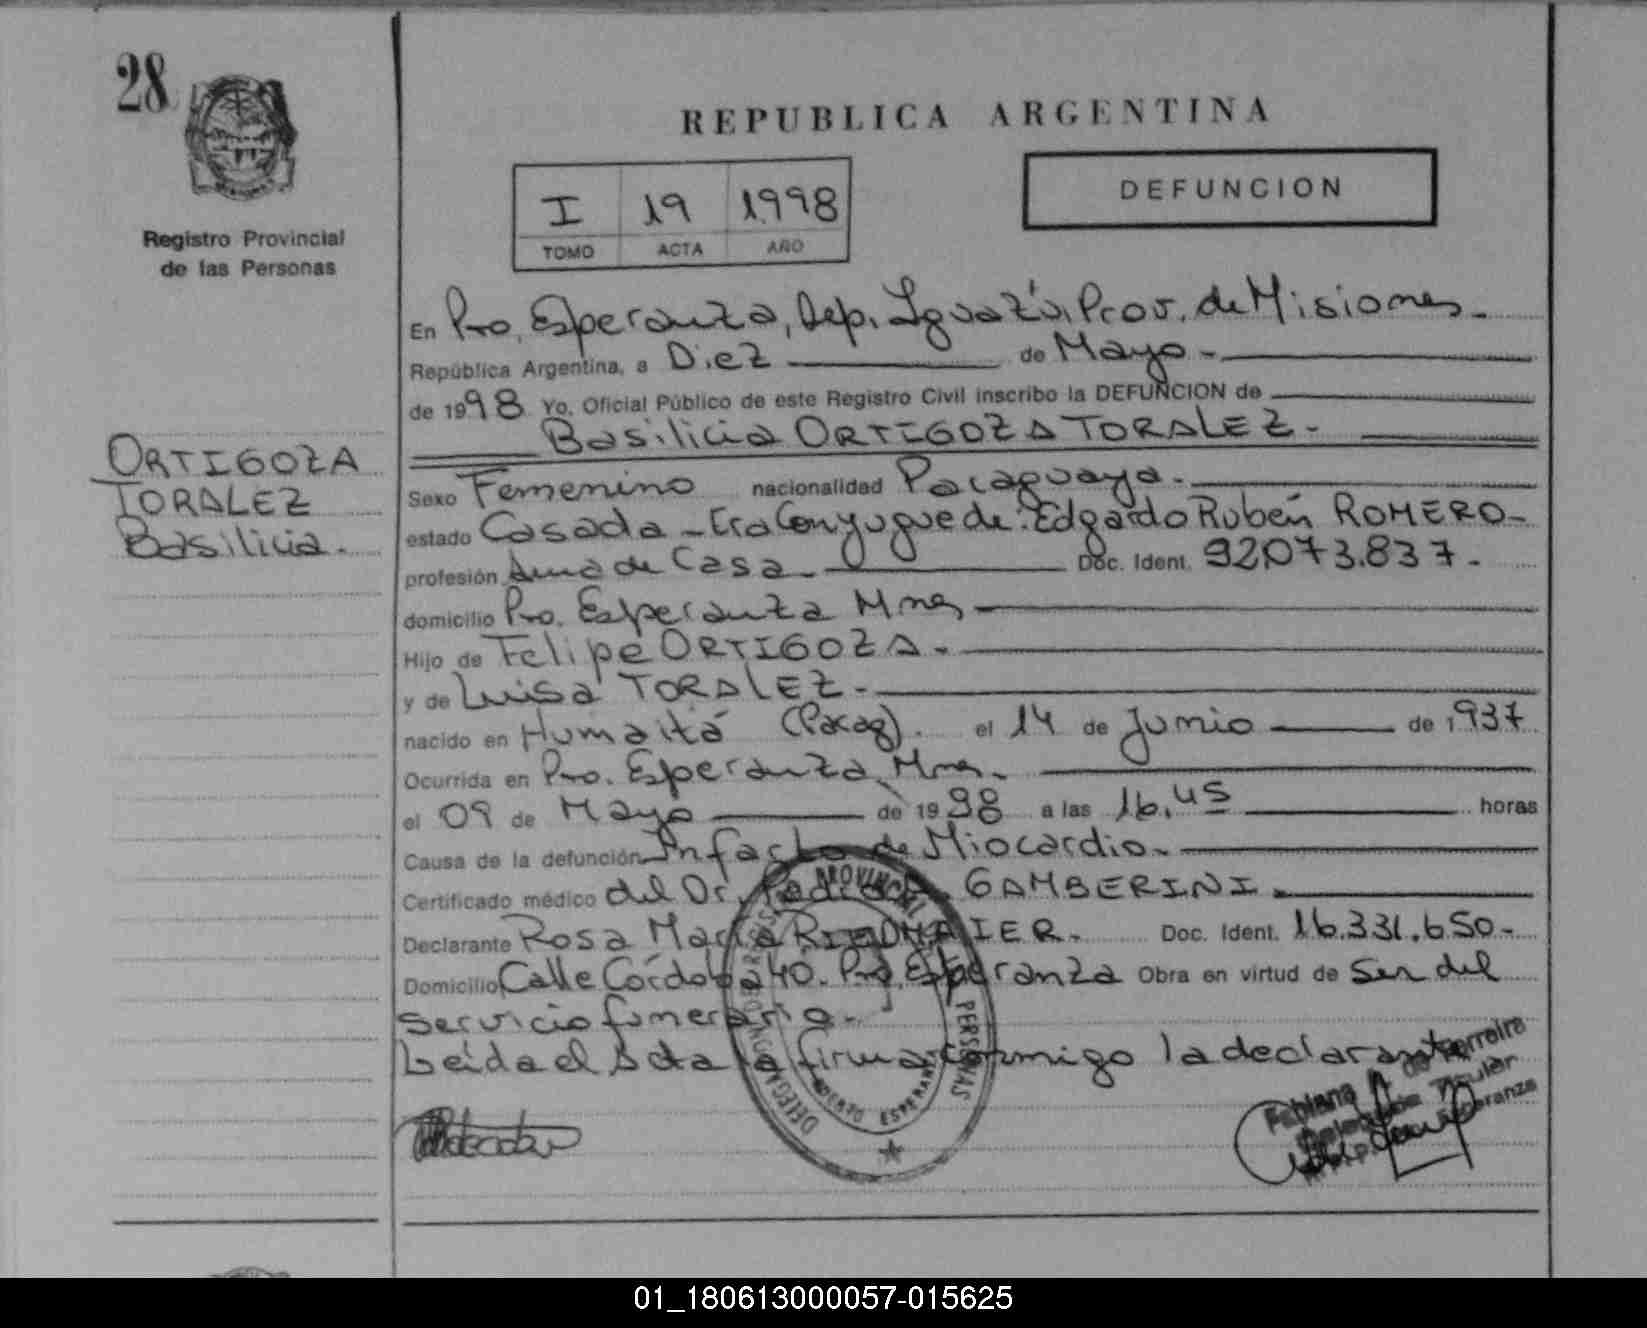 28
REPUBLICA ARGENTINA
DEFUNCION
I 19 1998
TOMO ACTA AÑO
Registro Provincial
de las Personas
ORTIGOZA
TORALEZ
Basilicia.
En Pto. Esperanza, Dep. Iguazú, Prov. de Misiones.
República Argentina, a Diez de Mayo.
de 1998 Yo, Oficial Público de este Registro Civil inscribo la DEFUNCION de
Basilicia ORTIGOZA TORALEZ.
Sexo Femenino nacionalidad Paraguaya.
estado Casada - Era Conyugue de: Edgardo Rubén ROMERO-
profesión Ama de Casa. Doc. Ident. 92.073.837.
domicilio Pto. Esperanza Mnes
Hijo de Felipe ORTIGOZA.
y de Luisa TORALEZ.
nacido en Humaitá (Parag). el 14 de Junio de 1937
Ocurrida en Pto. Esperanza, Mnes.
el 09 de Mayo de 1998 a las 16,45 horas
Causa de la defunción Infarto de Miocardio.
Certificado médico del Dr. GAMBERINI.
Declarante Rosa María RIEDMAIER. Doc. Ident. 16.331.650-
Domicilio Calle Córdoba 40. Pto. Esperanza Obra en virtud de Ser del
servicio funerario.
Leída el Acta la firma conmigo la declarante
PROVINCIAL
PERSONAS
DELEGACION
PUERTO ESPERANZA
Fabiana A. de Ferreira
Delegada Titular
Esperanza
01_180613000057-015625